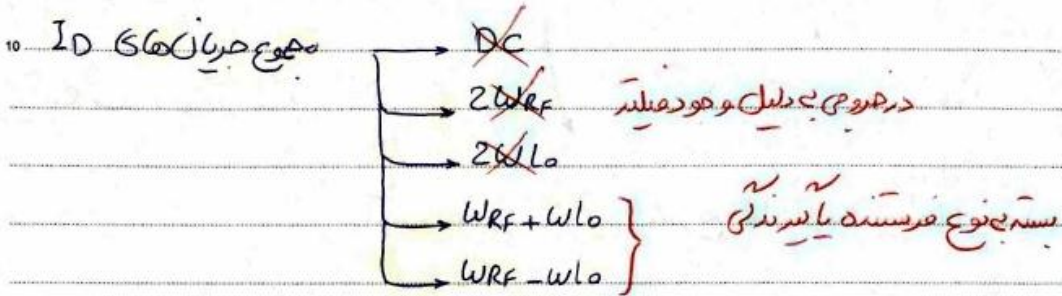 10 مجموع جریان های ID
DC
2WRF در خروجی به دلیل وجود فیلتر
2WLo
WRF + WLo
بسته به نوع فرستنده یا گیرندگی
WRF - WLo